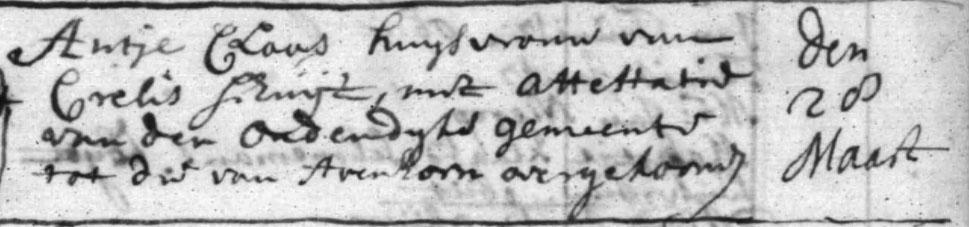 Antje Claas huysvrouw van
Crelis Schuijt, mit Attestatie
van den Oudendyke gemeente
tot die van Avenhorn overgekoomen
den
28
Maart